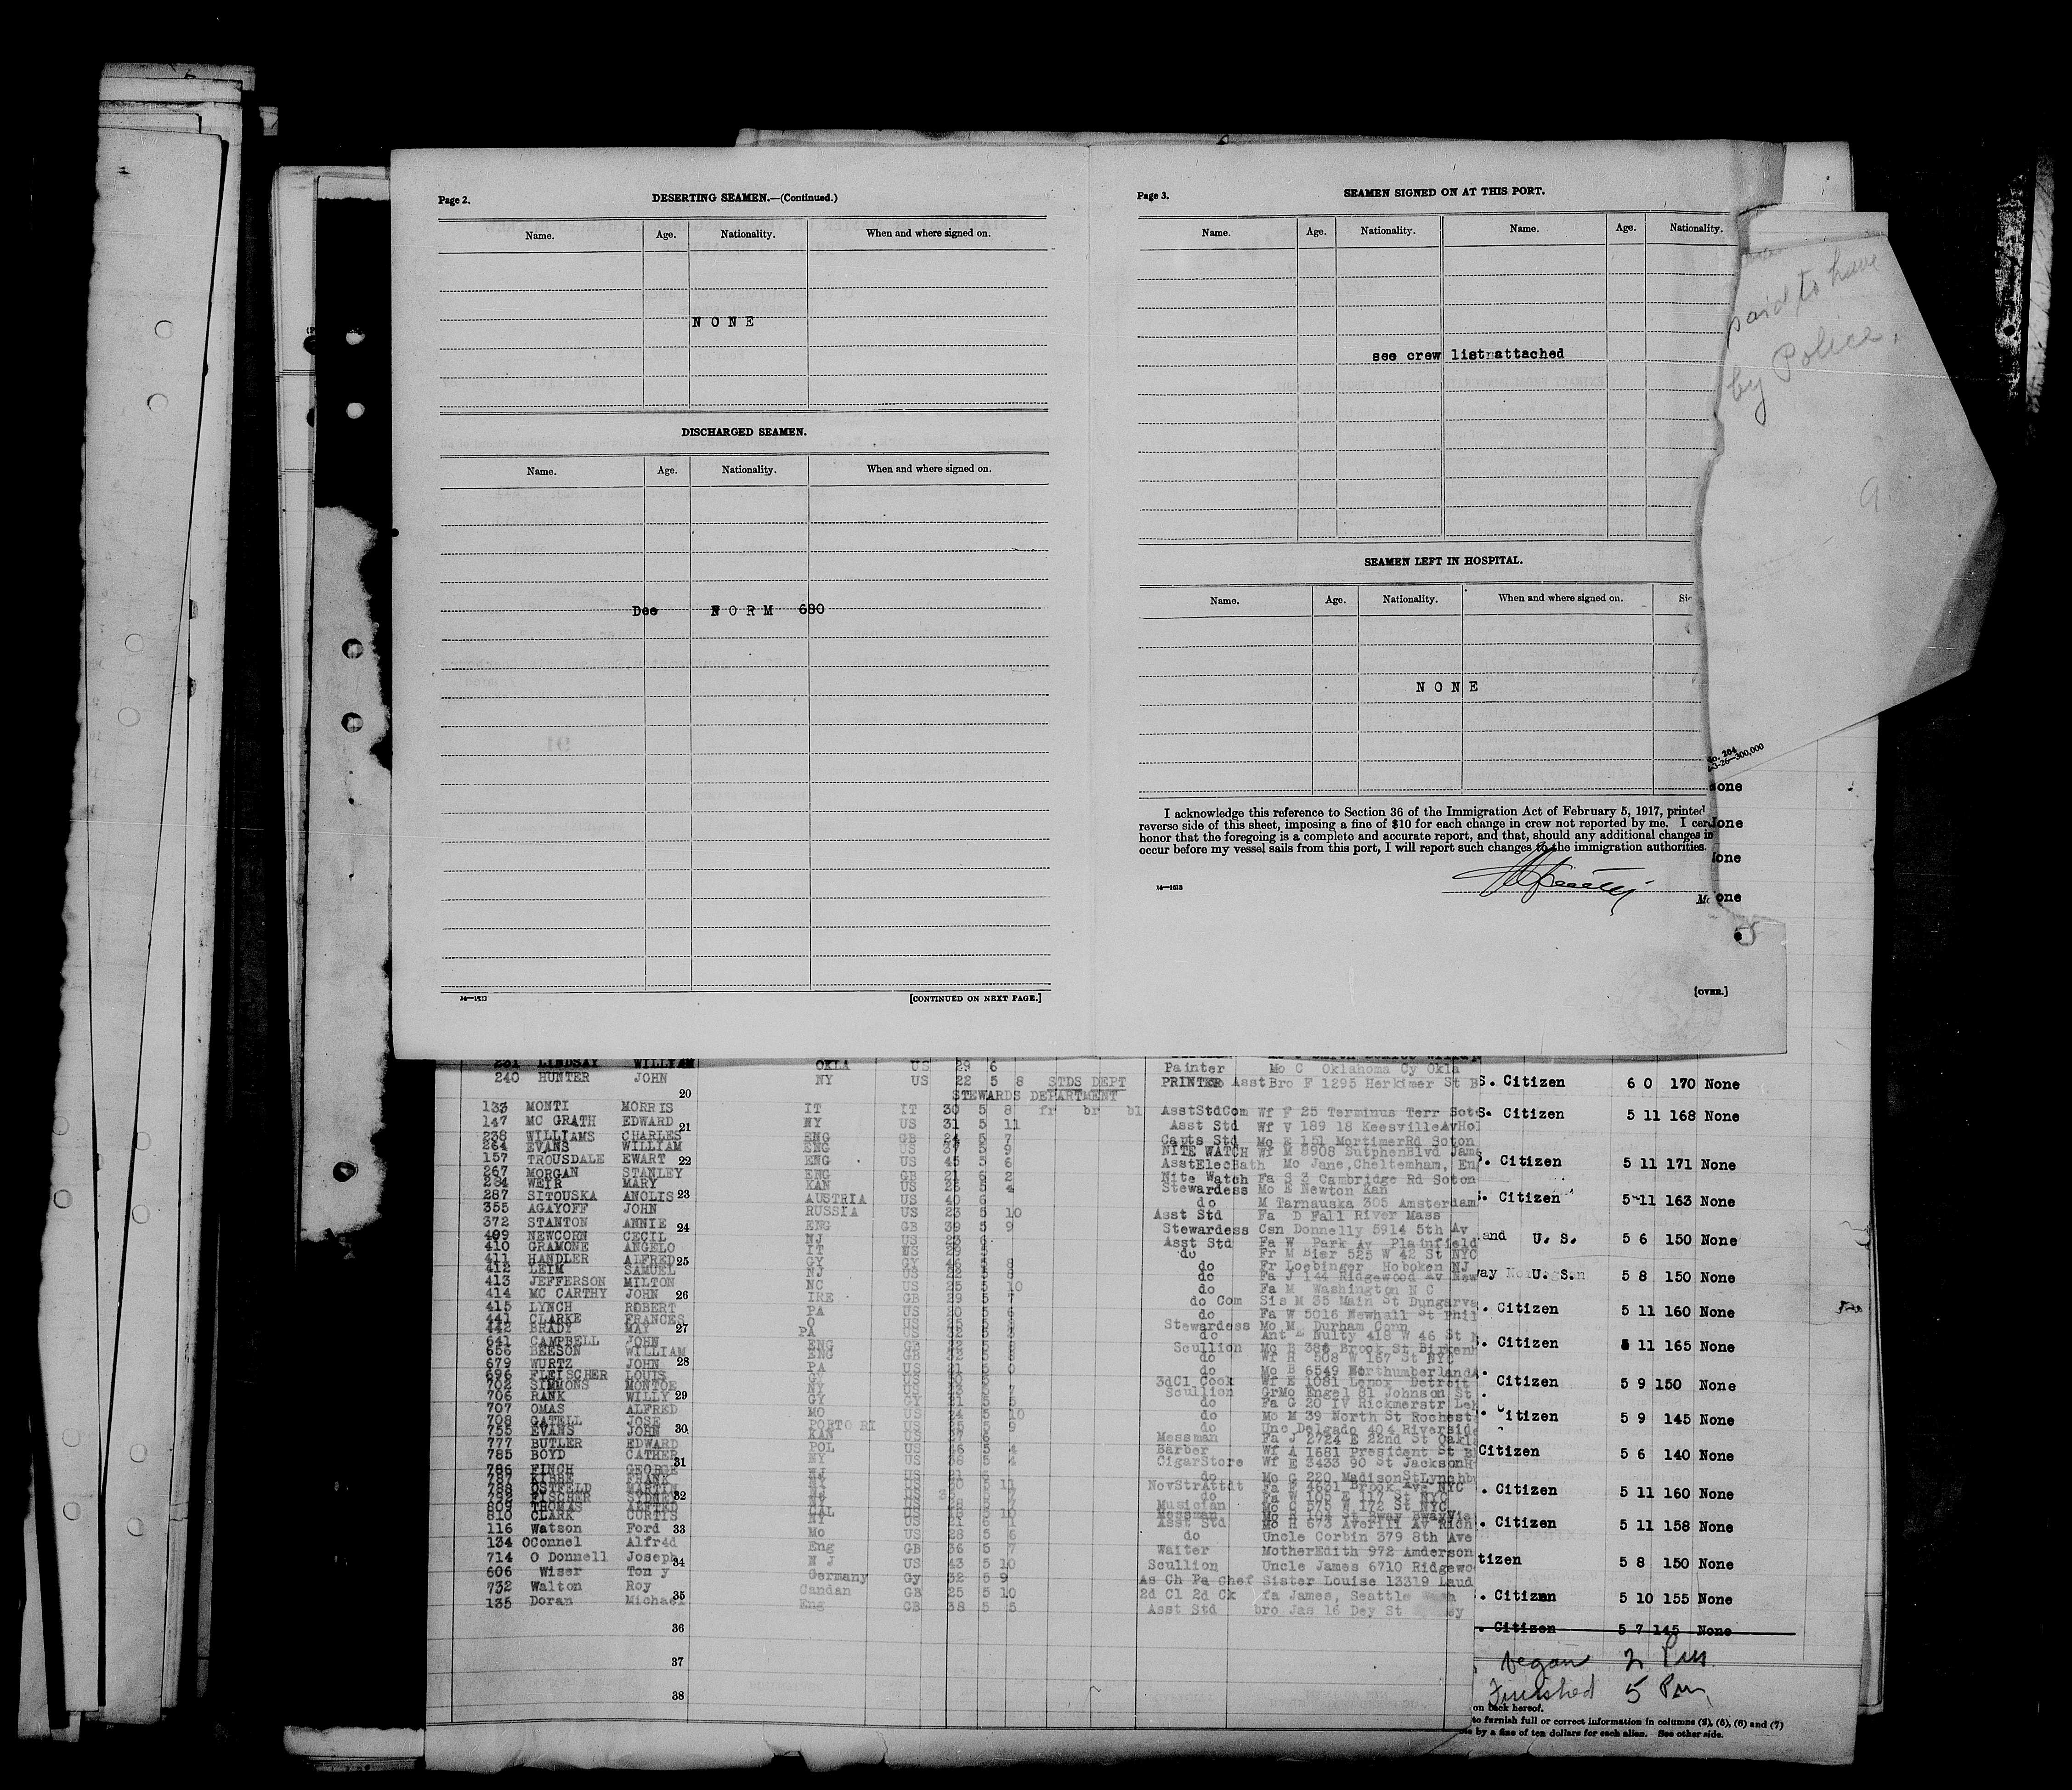 Page 2. DESERTING SEAMEN.—(Continued.)
Name. Age. Nationality. When and where signed on.
N O N E
DISCHARGED SEAMEN.
Name. Age. Nationality. When and where signed on.
Dee F O R M 680
14—1513 [CONTINUED ON NEXT PAGE.]
Page 3. SEAMEN SIGNED ON AT THIS PORT.
Name. Age. Nationality. Name. Age. Nationality.
see crew list attached
SEAMEN LEFT IN HOSPITAL.
Name. Age. Nationality. When and where signed on.
N O N E
I acknowledge this reference to Section 36 of the Immigration Act of February 5, 1917, printed
reverse side of this sheet, imposing a fine of $10 for each change in crew not reported by me. I cer
honor that the foregoing is a complete and accurate report, and that, should any additional changes in
occur before my vessel sails from this port, I will report such changes to the immigration authorities.
14—1513
[OVER.]
said to have
by Police.
No. 204
300,000
one
one
one
one
LINDSAY WILLIAM OKLA US 29 6 Painter Mo C Oklahoma Cy Okla
240 HUNTER JOHN NY US 22 5 8 STDS DEPT PRINTER Asst Bro F 1295 Herkimer St B
20 STEWARDS DEPARTMENT
133 MONTI MORRIS IT IT 30 5 8 fr br bl AsstStdCom Wf F 25 Terminus Terr Soto
147 MC GRATH EDWARD NY US 31 5 11 Asst Std Wf V 189 18 KeesvilleAvHol
21
238 WILLIAMS CHARLES ENG GB 24 5 7 Capts Std Mo E 151 MortimerRd Soton
264 EVANS WILLIAM ENG US 37 5 9 NITE WATCH Wf M 8908 SutphenBlvd Jama
157 TROUSDALE EWART 22 ENG US 45 5 6 AsstElecBath Mo Jane,Cheltemham, En
267 MORGAN STANLEY ENG GB 21 6 2 Nite Watch Fa S 3 Cambridge Rd Soton
284 WEIR MARY KAN US 28 5 4 Stewardess Mo E Newton Kan
287 SITOUSKA ANOLIS 23 AUSTRIA US 40 6 do M Tarnauska 305 Amsterdam
355 AGAYOFF JOHN RUSSIA US 23 5 10 Asst Std Fa D Fall River Mass
372 STANTON ANNIE 24 ENG GB 39 5 9 Stewardess Csn Donnelly 5914 5th Av
409 NEWCORN CECIL NJ US 23 6 Asst Std Fa W Park Av Plainfield
410 GRAMONE ANGELO IT US 29 5 do Fr M Bier 525 W 42 St NYC
411 HANDLER ALFRED 25 GY GY 46 5 8 do Fr Loebinger Hoboken NJ
412 LEIM SAMUEL NJ US 22 5 8 do Fa J 144 Ridgewood Av New
413 JEFFERSON MILTON NC US 25 5 10 do Fa M Washington N C
414 MC CARTHY JOHN 26 IRE GB 29 5 7 do Com Sis M 35 Main St Dungarva
415 LYNCH ROBERT PA US 20 5 6 do Fa W 5016 Newhall St Phil
441 CLARKE FRANCES O US 25 5 Stewardess Mo M Durham Conn
442 BRADY MAY 27 PA US 32 5 do Ant E Nulty 418 W 46 St N
641 CAMPBELL JOHN ENG GB 22 5 Scullion Mo H 386 Brook St Birkenh
656 BEESON WILLIAM ENG GB 32 5 8 do Wf H 508 W 167 St NYC
679 WURTZ JOHN 28 PA US 21 5 0 do Mo B 6549 NorthumberlandA
696 FLEISCHER LOUIS GY US 3dCl Cook Wf E 1081 Lenox Detroit
702 SIMMONS MONTOE NY US 23 5 7 Scullion GrMo Engel 81 Johnson St
706 RANK WILLY 29 GY GY 21 5 5 do Fa G 20 IV Rickmerstr Leh
707 OMAS ALFRED MO US 24 5 10 do Mo M 39 North St Rochest
708 GATELL JOSE PORTO RI US 25 5 9 do Unc Delgado 404 Riverside
755 EVANS JOHN 30 KAN US 27 6 Messman Fa J 2724 E 22nd St Oakl
777 BUTLER EDWARD POL US 46 5 4 Barber Wf A 1681 President St B
785 BOYD CATHER NY US 38 5 4 CigarStore Wf E 3433 90 St JacksonH
31
786 FINCH GEORGE NJ US 21 6 do Mo C 220 MadisonStLynchb
787 KIBBE FRANK US 5 11 NovStrAttdt Fa F 4631 Brook Av NYC
788 OSTFELD MARTIN US do Fa W 105 E 117 St NYC
792 FISCHER SYDNEY 32 NY US 28 5 7 Musician Mo C 575 W 172 St NYC
809 THOMAS ALFRED CAL US 5 10 Messman
810 CLARK CURTIS NY US 21 6 1 Asst Std Mo H 673 Averill Av Rich
116 Watson Ford 33 Mo US 28 5 6 do Uncle Corbin 379 8th Ave
134 OConnel Alfr4d Eng GB 36 5 7 Waiter MotherEdith 972 Amderson
714 O Donnell Joseph 34 N J US 43 5 10 Scullion Uncle James 6710 Ridgewo
606 Wiser Ton y Germany Gy 32 5 9 As Ch Pa Chef Sister Louise 13319 Laud
732 Walton Roy Candan GB 25 5 10 2d Cl 2d Ck fa James, Seattle
35
135 Doran Michael Eng GB 38 5 5 Asst Std bro Jas 16 Dey St
36
37
38
S. Citizen 6 0 170 None
S. Citizen 5 11 168 None
. Citizen 5 11 171 None
. Citizen 5 11 163 None
and U. S. 5 6 150 None
way U. S. 5 8 150 None
. Citizen 5 11 160 None
. Citizen 5 11 165 None
. Citizen 5 9 150 None
. Citizen 5 9 145 None
Citizen 5 6 140 None
. Citizen 5 11 160 None
. Citizen 5 11 158 None
tizen 5 8 150 None
. Citizen 5 10 155 None
. Citizen 5 7 145 None
began 2 Pm
Finished 5 Pm
on back hereof.
to furnish full or correct information in columns (2), (5), (6) and (7)
by a fine of ten dollars for each alien. See other side.